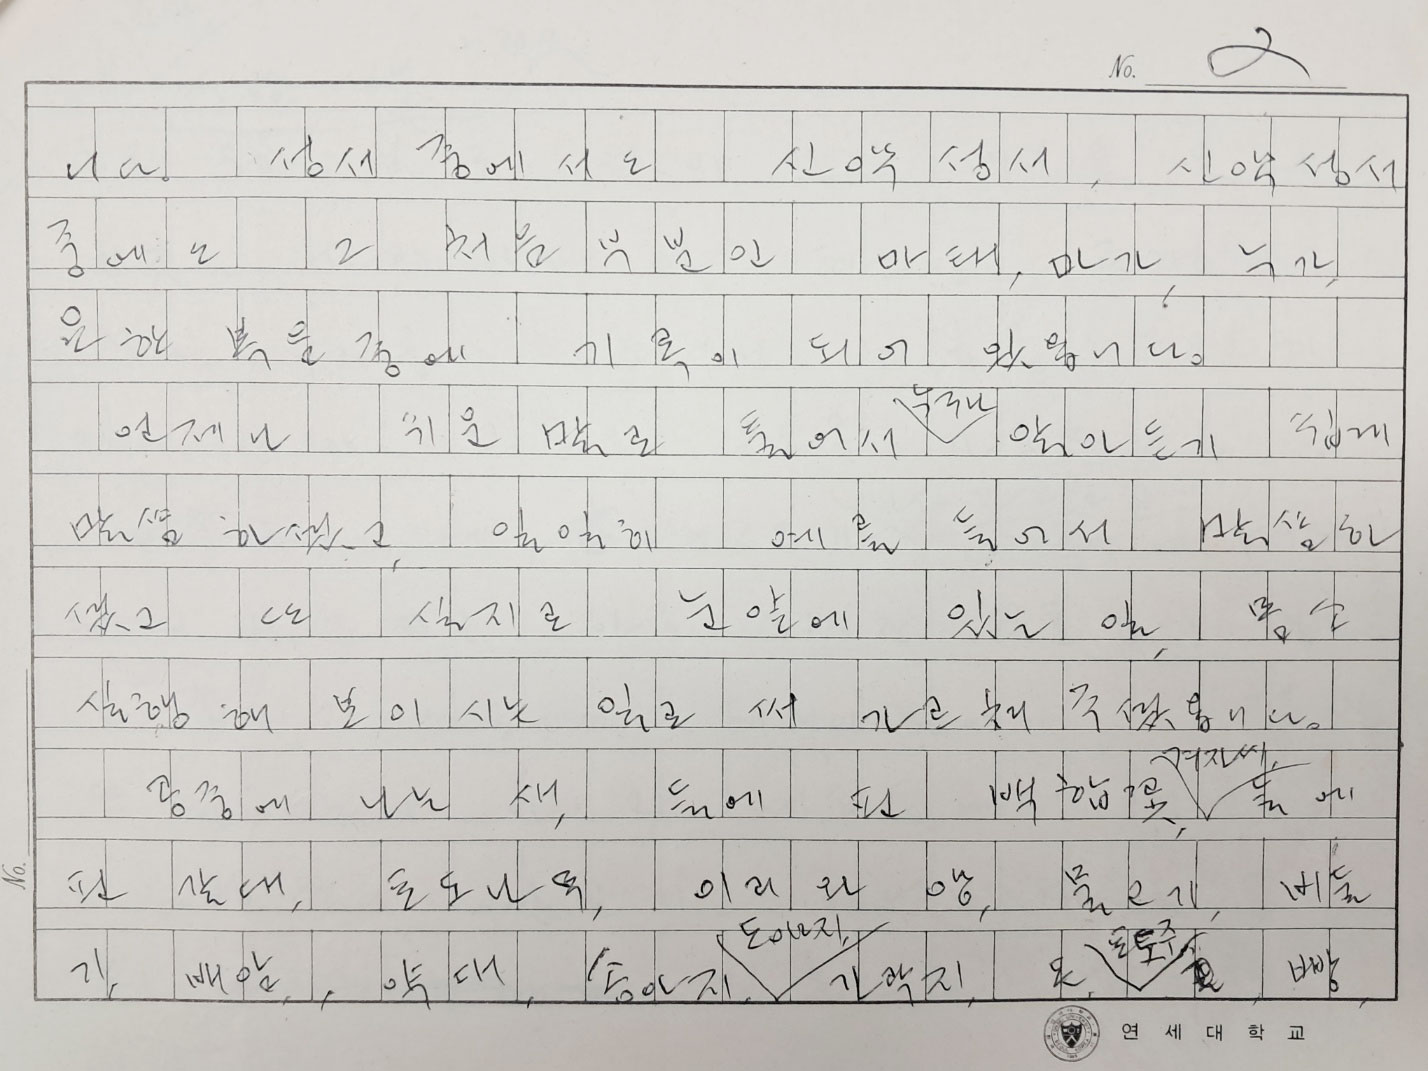 No. 2
니다. 성서 중에서도 신약성서, 신약성서
중에도 그 처음 부분인 마태, 마가, 누가,
요한 복음 중에 기록이 되어 있읍니다.
언제나 쉬운 말로 들어서 누구나 알아듣기 쉽게
말씀 하셨고, 일일히 예를 들어서 말씀하
셨고 또 실지로 눈앞에 있는 일, 몸소
실행해 보이시는 일로써 가르쳐 주셨읍니다.
공중에 나는 새, 들에 핀 백합꽃, 겨자씨, 들에
핀 갈대, 포도나무, 이리와 양, 물고기, 비둘
기, 배암, 약대, 송아지, 도야지, 가락지, 포도주, 빵,
No.
연세대학교